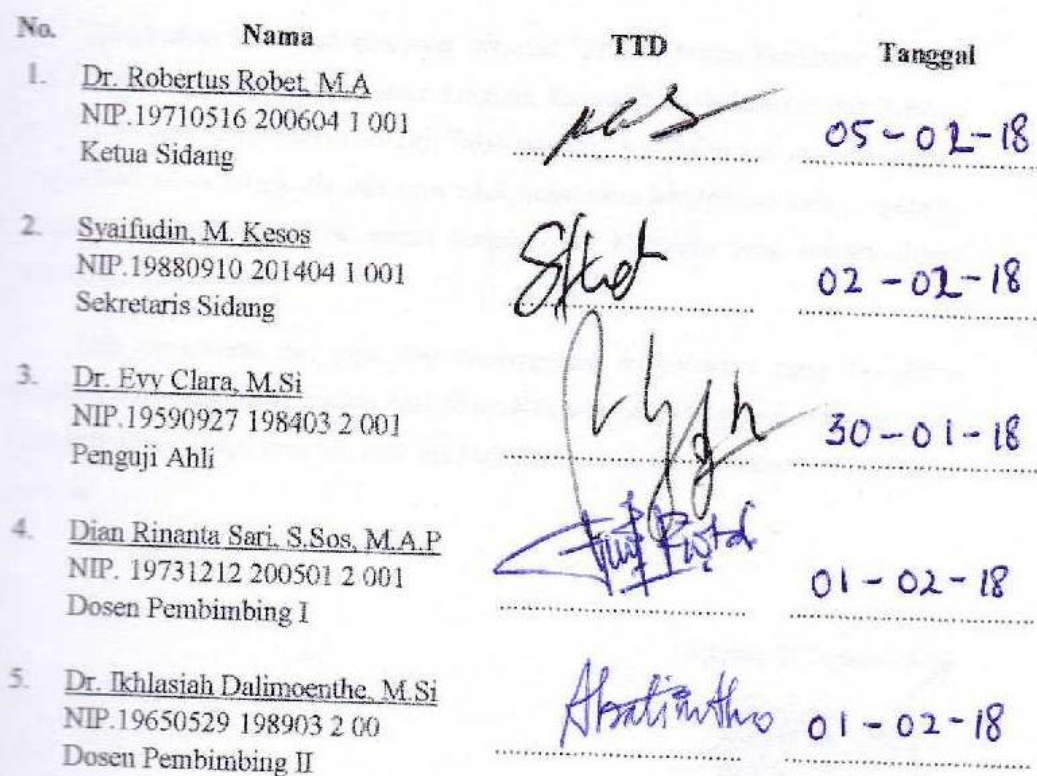 No. Nama TTD Tanggal
1. Dr. Robertus Robet, M.A
NIP.19710516 200604 1 001
Ketua Sidang
05-02-18
2. Syaifudin, M. Kesos
NIP.19880910 201404 1 001
Sekretaris Sidang
02-02-18
3. Dr. Evy Clara, M.Si
NIP.19590927 198403 2 001
Penguji Ahli
30-01-18
4. Dian Rinanta Sari, S.Sos, M.A.P
NIP. 19731212 200501 2 001
Dosen Pembimbing I
01-02-18
5. Dr. Ikhlasiah Dalimoenthe, M.Si
NIP.19650529 198903 2 00
Dosen Pembimbing II
01-02-18